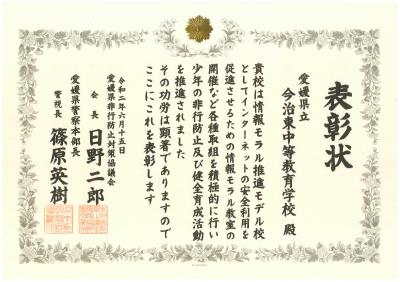 表彰状
愛媛県立
今治東中等教育学校 殿
貴校は情報モラル推進モデル校
としてインターネットの安全利用を
促進させるための情報モラル教室の
開催など各種取組を積極的に行い
少年の非行防止及び健全育成活動
を推進されました
その功労は顕著でありますので
ここにこれを表彰します
令和二年六月十五日
愛媛県非行防止対策協議会
会長 日野二郎
愛媛県警察本部長
警視長 篠原英樹